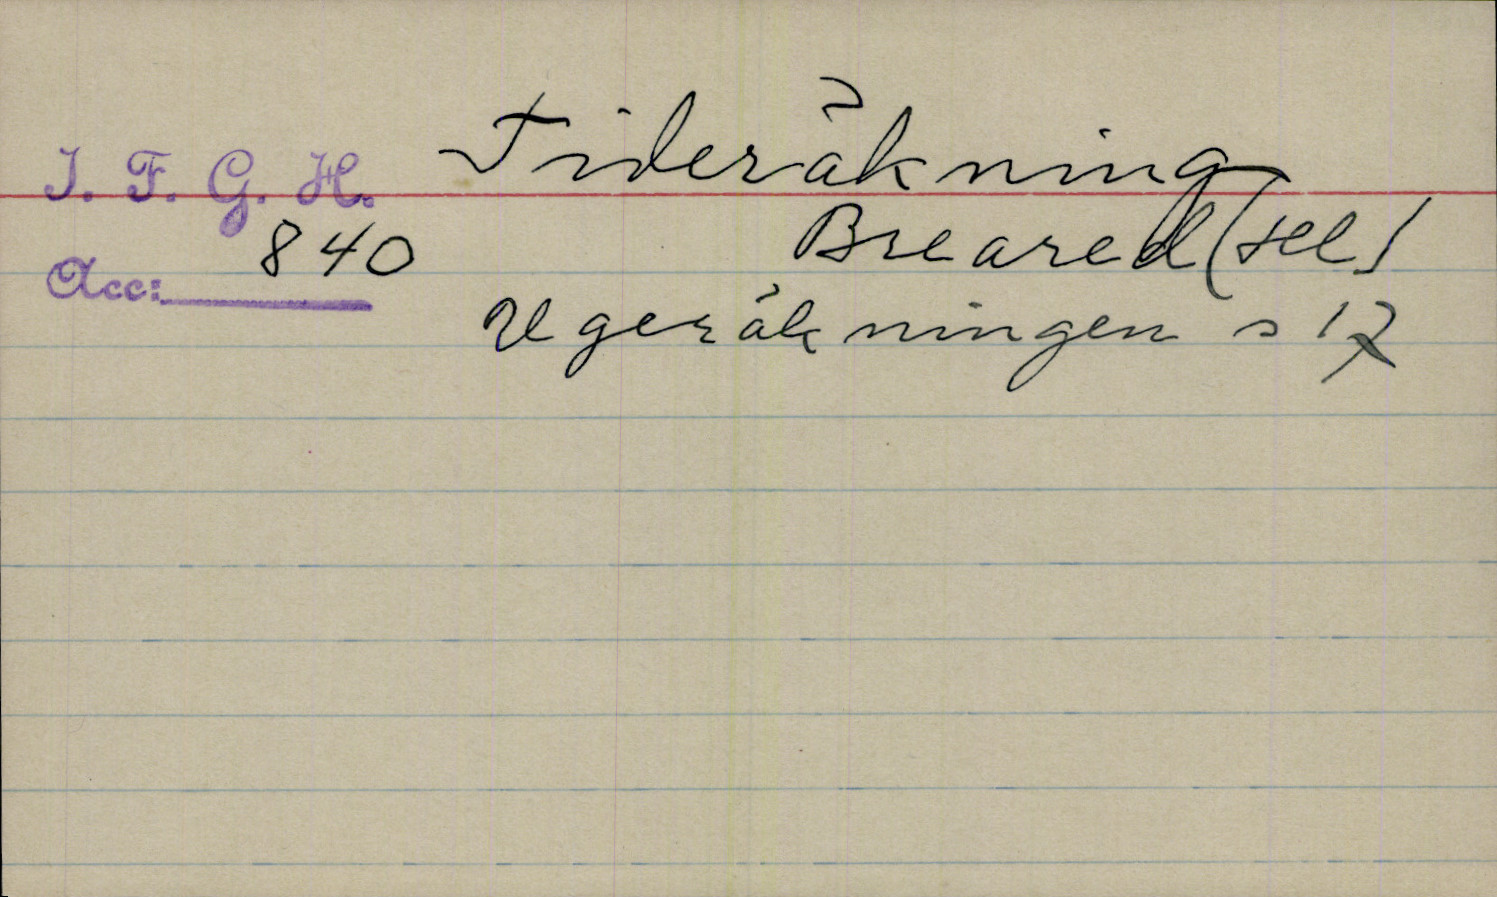 Tideräkning
I. F. G. H.
Breared (Hl)
840
Acc:
Ugeräkningen s 17